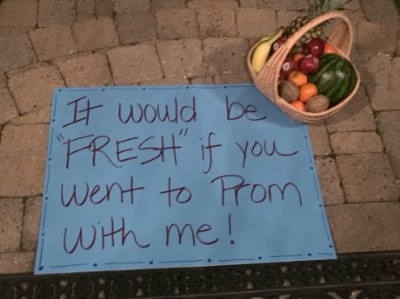 It would be
"FRESH" if you
went to Prom
with me!